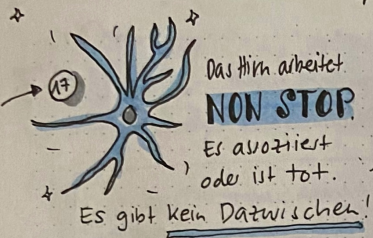 17
Das Hirn arbeitet
NON STOP.
Es assoziiert
oder ist tot.
Es gibt kein Dazwischen!